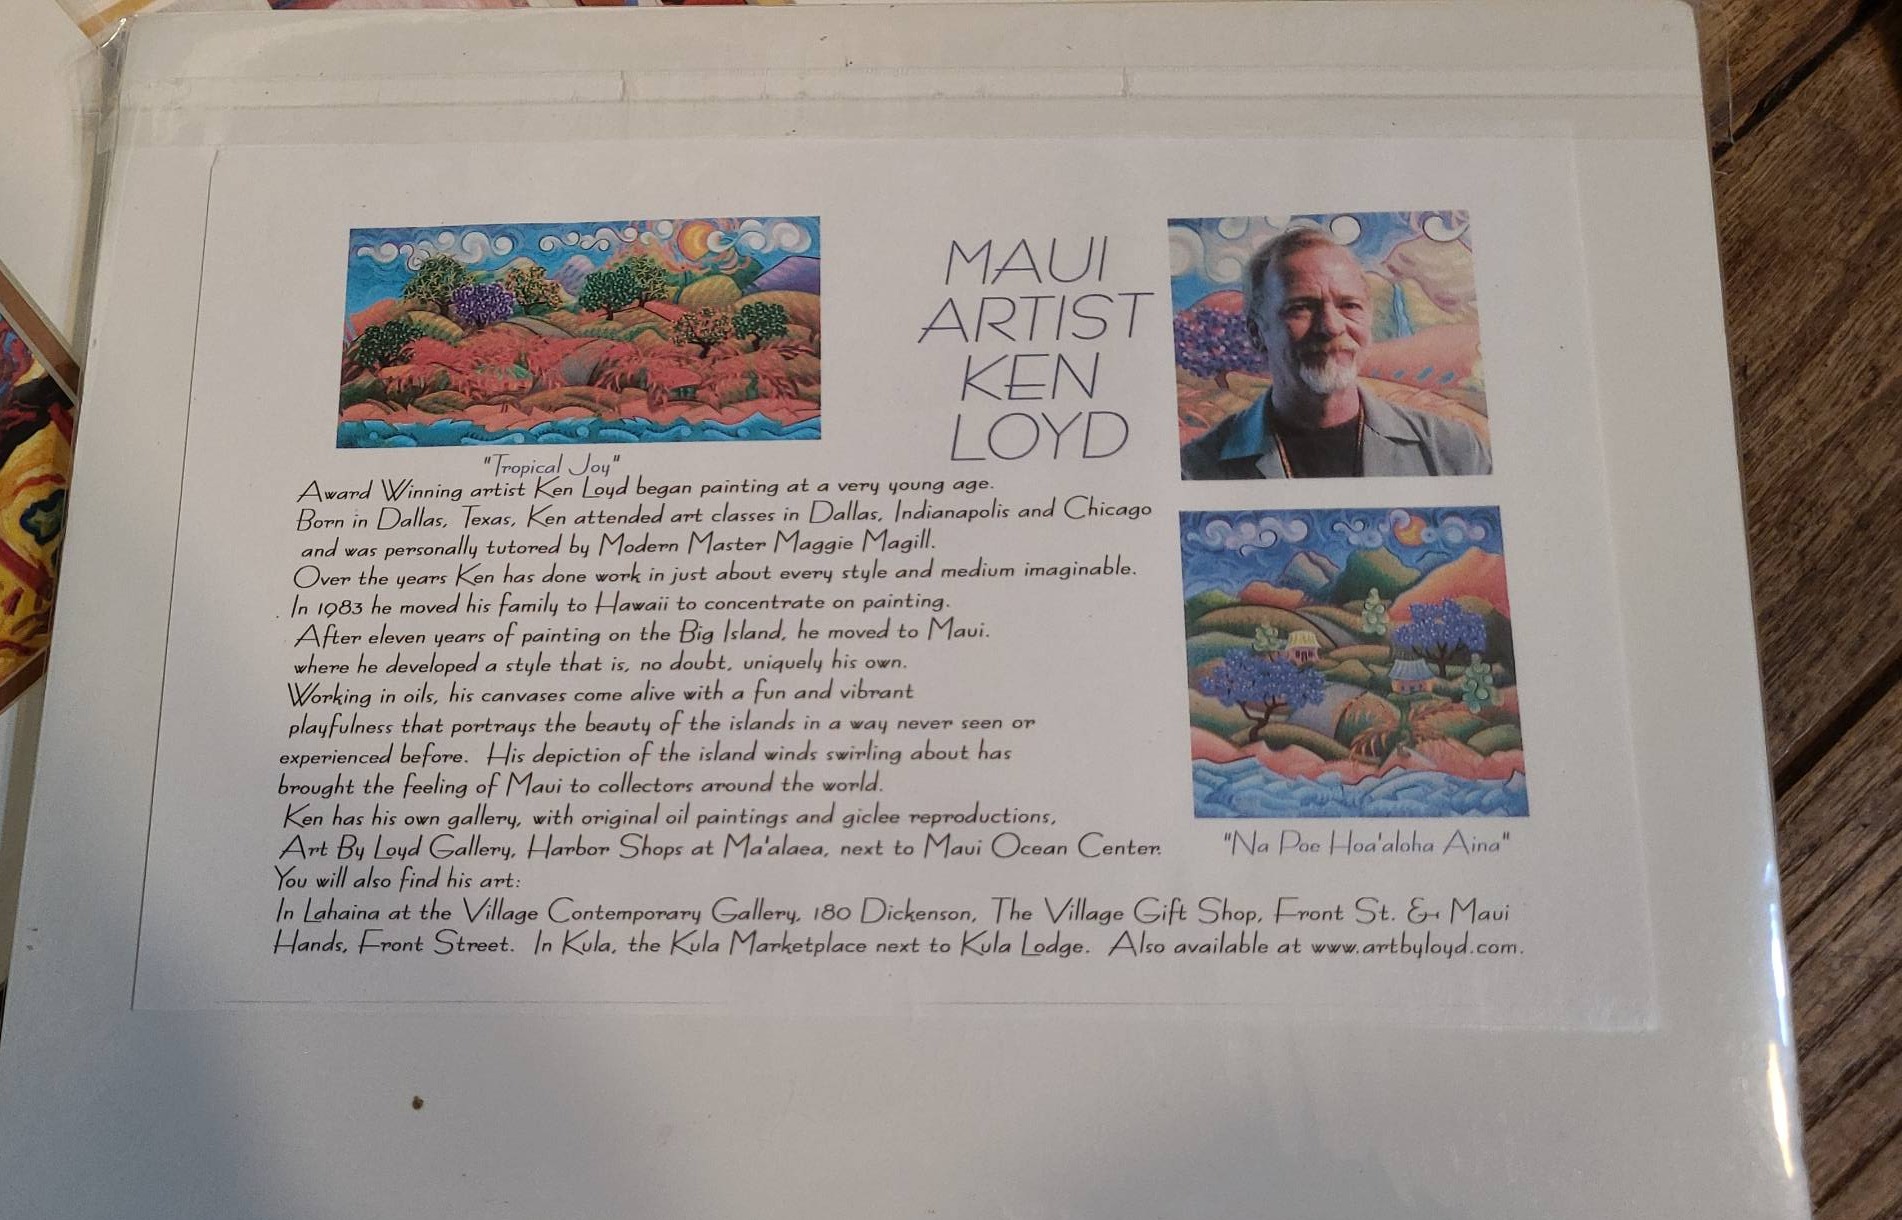 MAUI
ARTIST
KEN
LOYD
"Tropical Joy"
Award Winning artist Ken Loyd began painting at a very young age.
Born in Dallas, Texas, Ken attended art classes in Dallas, Indianapolis and Chicago
and was personally tutored by Modern Master Maggie Magill.
Over the years Ken has done work in just about every style and medium imaginable.
In 1983 he moved his family to Hawaii to concentrate on painting.
After eleven years of painting on the Big Island, he moved to Maui.
where he developed a style that is, no doubt, uniquely his own.
Working in oils, his canvases come alive with a fun and vibrant
playfulness that portrays the beauty of the islands in a way never seen or
experienced before. His depiction of the island winds swirling about has
brought the feeling of Maui to collectors around the world.
Ken has his own gallery, with original oil paintings and giclee reproductions,
Art By Loyd Gallery, Harbor Shops at Ma'alaea, next to Maui Ocean Center.
"Na Poe Hoa'aloha Aina"
You will also find his art:
In Lahaina at the Village Contemporary Gallery, 180 Dickenson, The Village Gift Shop, Front St. & Maui
Hands, Front Street. In Kula, the Kula Marketplace next to Kula Lodge. Also available at www.artbyloyd.com.